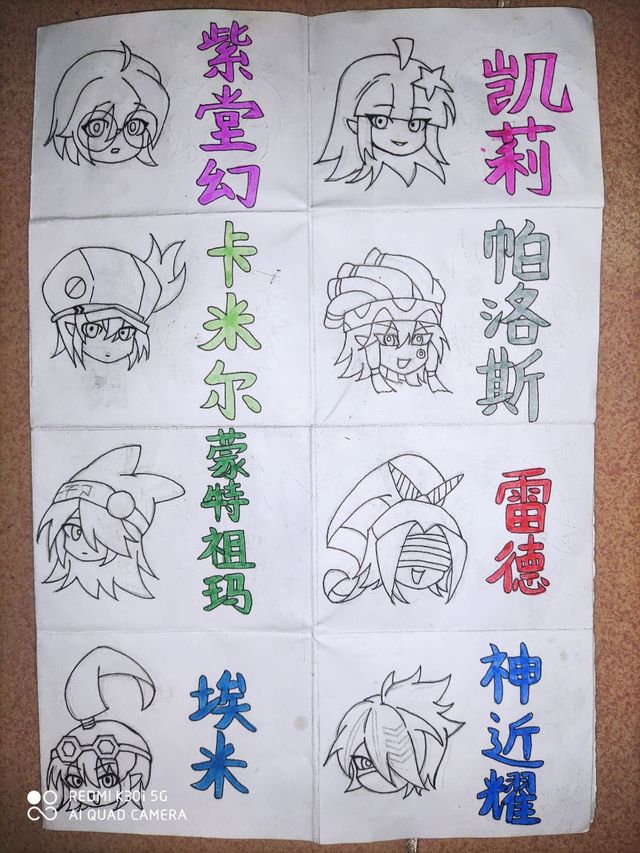 紫堂幻
凯莉
卡米尔
帕洛斯
蒙特祖玛
雷德
埃米
神近耀
REDMI K30i 5G
AI QUAD CAMERA